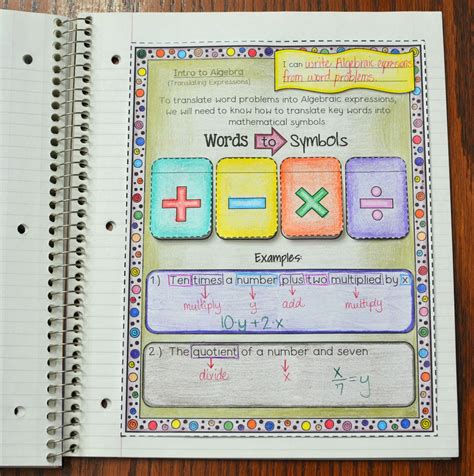 I can write Algebraic expressions
from word problems.
Intro to Algebra
(Translating Expressions)
To translate word problems into Algebraic expressions,
we will need to know how to translate key words into
mathematical symbols
Words to Symbols
+ − × ÷
Examples:
1.) Ten times a number plus two multiplied by x
multiply y add multiply
10·y+2·x
2.) The quotient of a number and seven
divide x x/7 = y